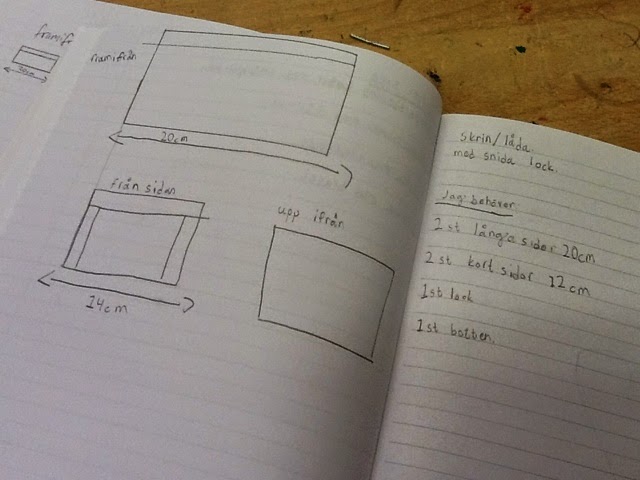 framif
ramifrån
20cm
från sidan
14cm
upp ifrån
skrin/låda.
med snida lock.
Jag behöver
2 st långa sidor 20cm
2 st kort sidor 12cm
1st lock
1st botten.